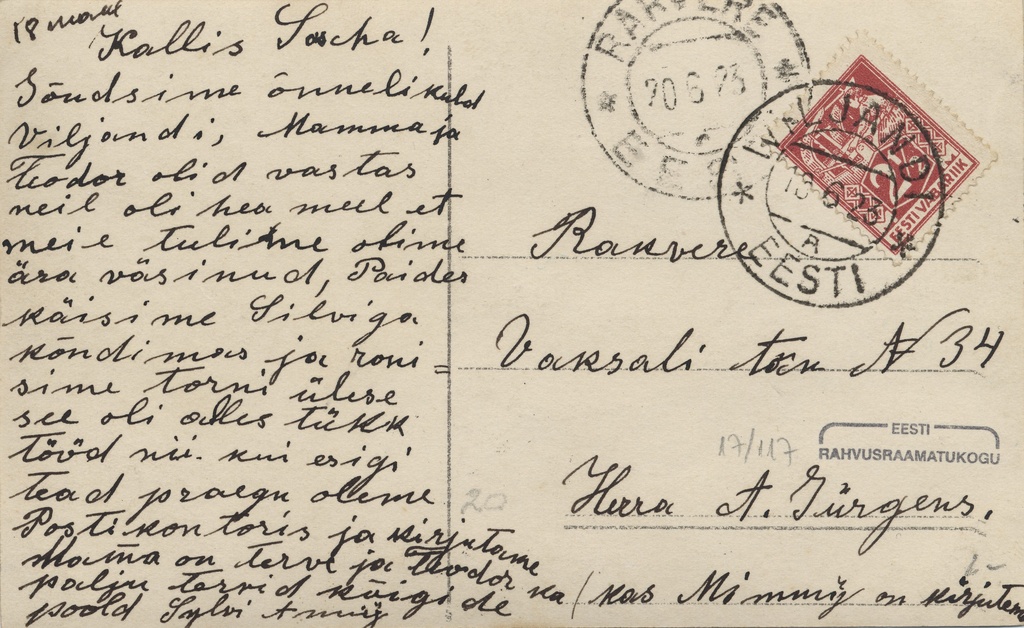 18
Kallis Sascha!
Sõudsime õnnelikuld
Viljandi, Mamma ja
Teodor olid vastas
neil oli hea meel et
meie tulime olime
ära väsinud, Paides
käisime Silviga
kõndimas ja roni=
sime torni ülese
see oli alles tükk
tööd nii kui esigi
tead praegu oleme
Postikontoris ja kirjutame
Mama on terve ja Teodor ka
palju tervid kõigi de
poold Sylvi
(kas Mimmy on kirjutan
RAKVERE
20 6 23
EESTI
WILJANDI
18 6 23
A
EESTI
EESTI VABARIIK
Rakvere
Vaksali tän N 34
17/117
EESTI
RAHVUSRAAMATUKOGU
Herra A. Jürgens.
20